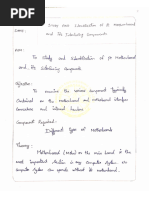 Study And Identification of pc motherboard
Name:
and Its Interfacing Components.
Aim:
To Study and Identification of pc Motherboard
and Its Interfacing Components.
Objective:
To examine the various component typically
Contained on the motherboard and motherboard interface
Connectors and internal headers
Component Required:
Different type of Motherboards
Theory:
Motherboard (also) or the main board is the
most important station in any Computer System. No
Computer System can operate without its motherboard.